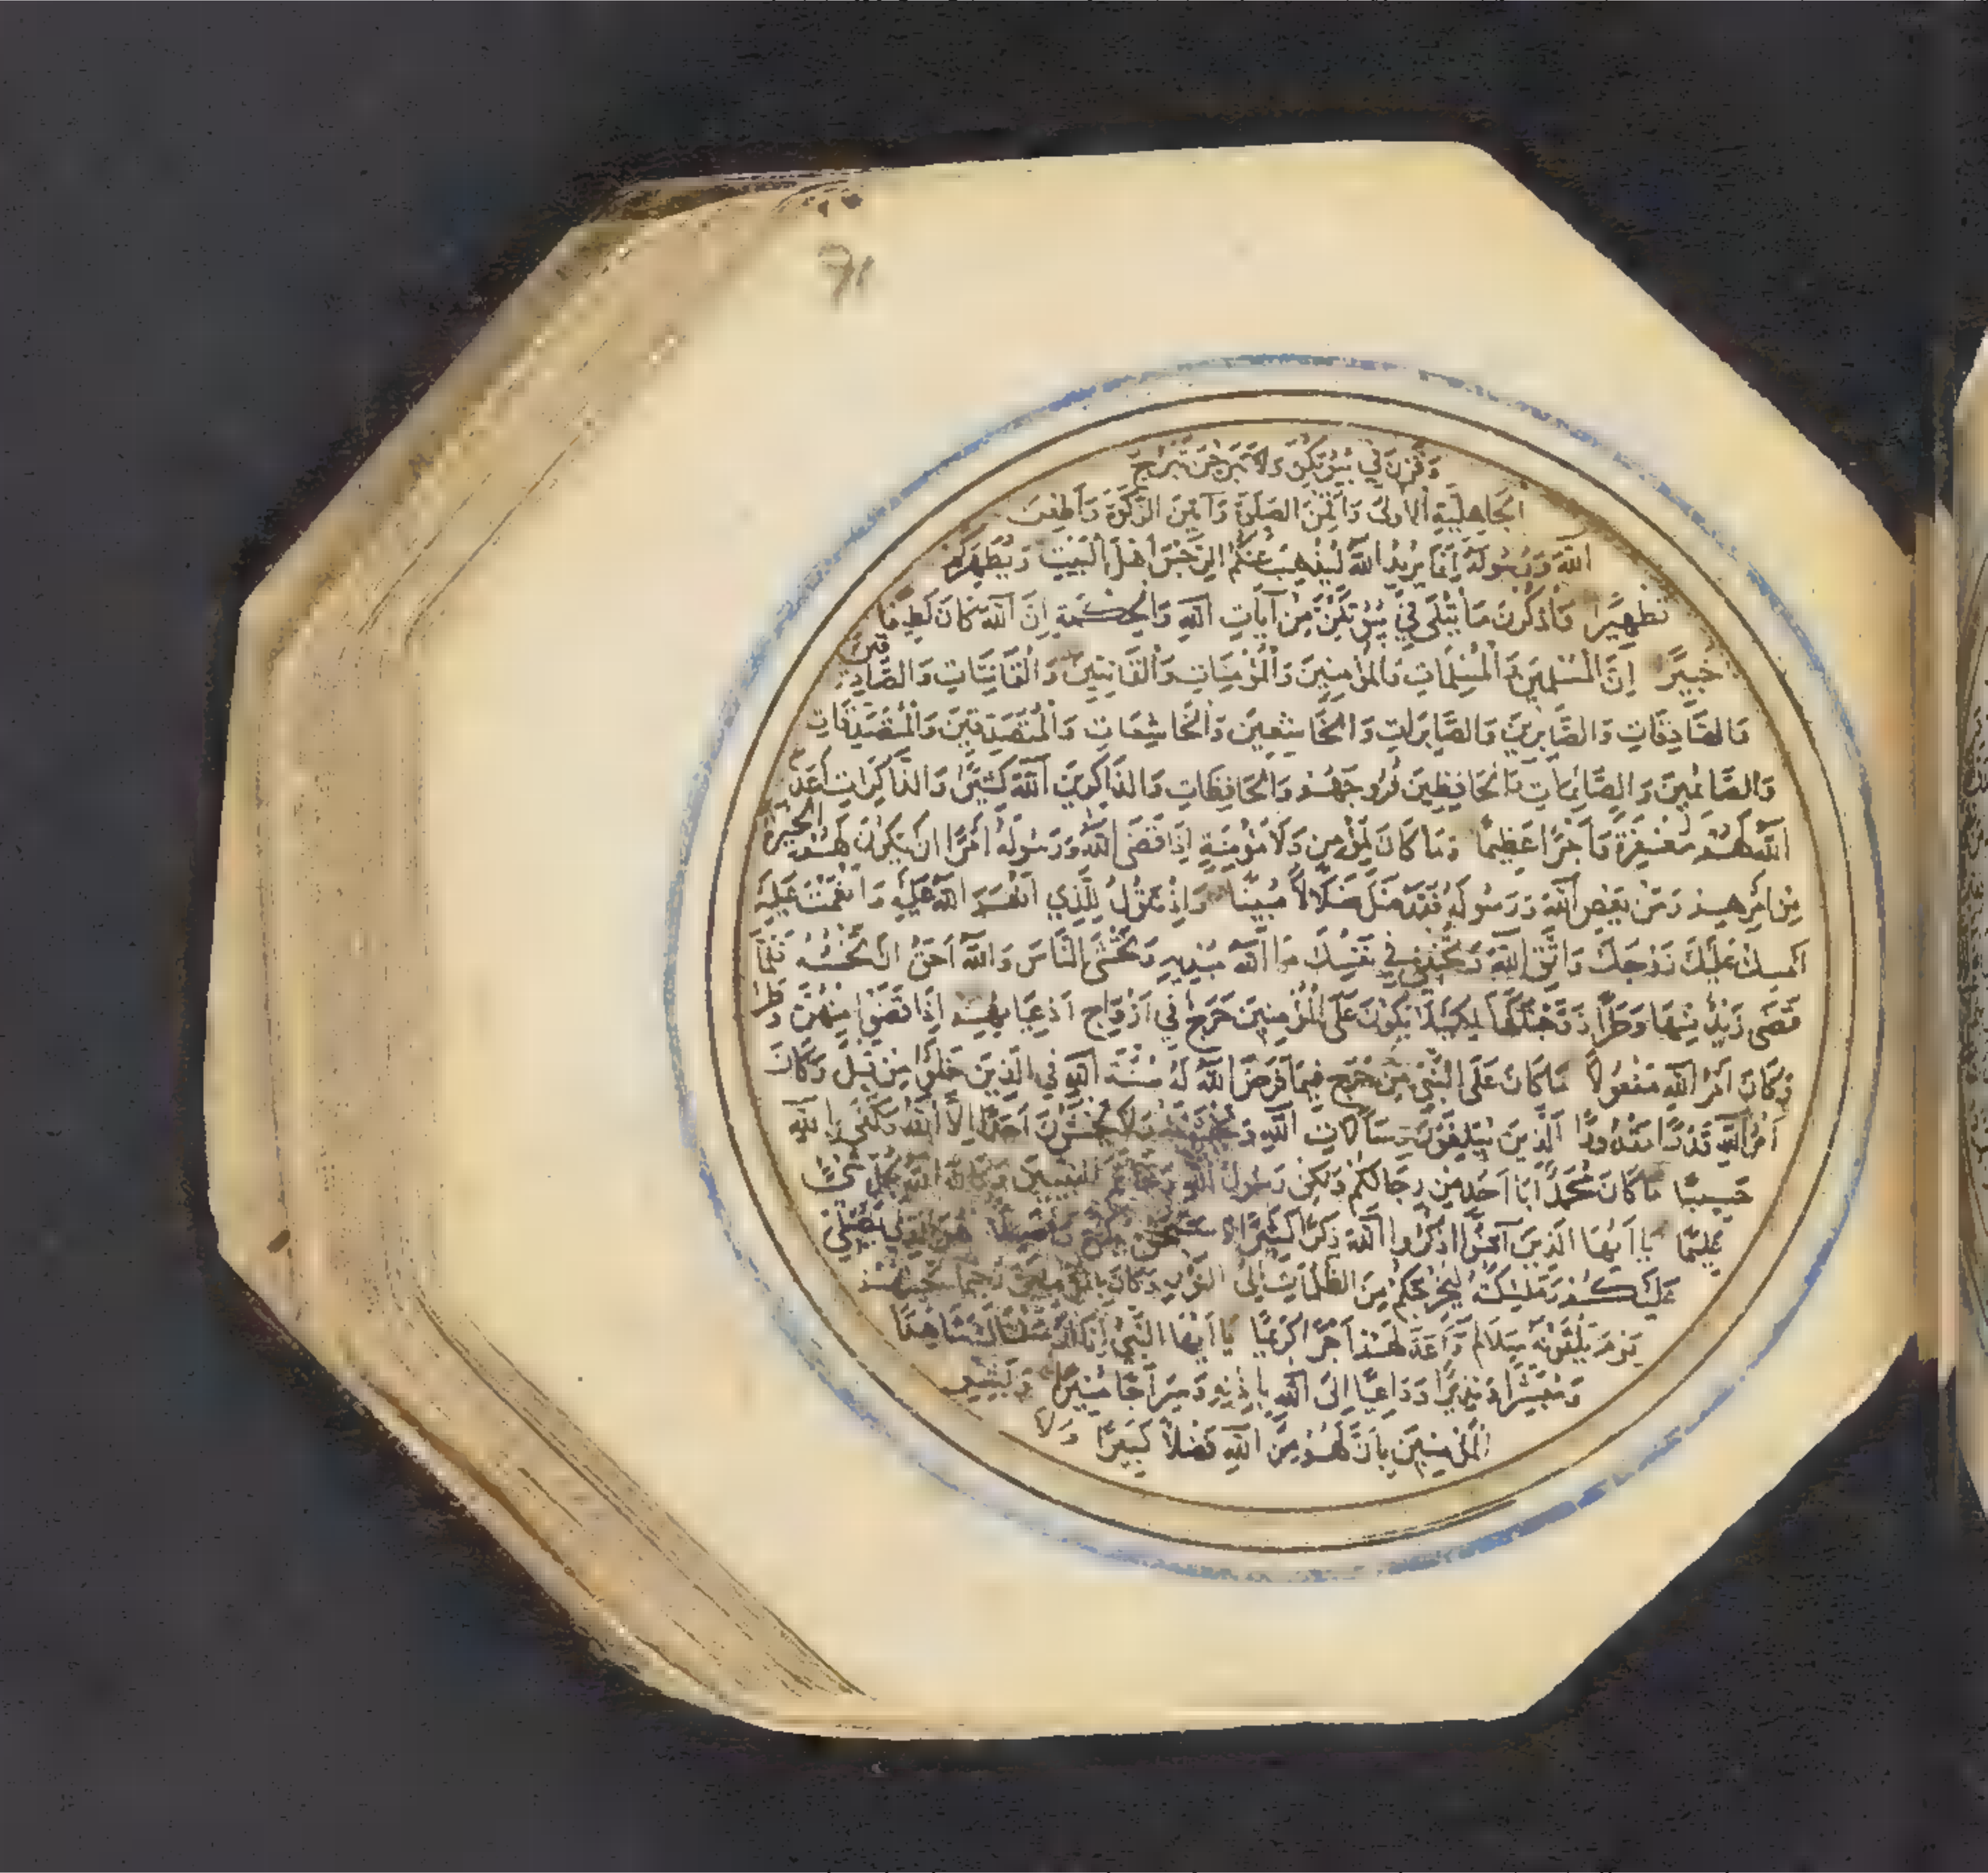 وَقَرْنَ فِي بُيُوتِكُنَّ وَلَا تَبَرَّجْنَ تَبَرُّجَ
الْجَاهِلِيَّةِ الْأُولَى وَأَقِمْنَ الصَّلَوةَ وَآتِينَ الزَّكَوةَ وَأَطِعْنَ
اللَّهَ وَرَسُولَهُ إِنَّمَا يُرِيدُ اللَّهُ لِيُذْهِبَ عَنْكُمُ الرِّجْسَ أَهْلَ الْبَيْتِ وَيُطَهِّرَكُمْ
تَطْهِيرًا وَاذْكُرْنَ مَا يُتْلَى فِي بُيُوتِكُنَّ مِنْ آيَاتِ اللَّهِ وَالْحِكْمَةِ إِنَّ اللَّهَ كَانَ لَطِيفًا
خَبِيرًا إِنَّ الْمُسْلِمِينَ وَالْمُسْلِمَاتِ وَالْمُؤْمِنِينَ وَالْمُؤْمِنَاتِ وَالْقَانِتِينَ وَالْقَانِتَاتِ وَالصَّادِقِينَ
وَالصَّادِقَاتِ وَالصَّابِرِينَ وَالصَّابِرَاتِ وَالْخَاشِعِينَ وَالْخَاشِعَاتِ وَالْمُتَصَدِّقِينَ وَالْمُتَصَدِّقَاتِ
وَالصَّائِمِينَ وَالصَّائِمَاتِ وَالْحَافِظِينَ فُرُوجَهُمْ وَالْحَافِظَاتِ وَالذَّاكِرِينَ اللَّهَ كَثِيرًا وَالذَّاكِرَاتِ أَعَدَّ
اللَّهُ لَهُمْ مَغْفِرَةً وَأَجْرًا عَظِيمًا وَمَا كَانَ لِمُؤْمِنٍ وَلَا مُؤْمِنَةٍ إِذَا قَضَى اللَّهُ وَرَسُولُهُ أَمْرًا أَنْ يَكُونَ لَهُمُ الْخِيَرَةُ
مِنْ أَمْرِهِمْ وَمَنْ يَعْصِ اللَّهَ وَرَسُولَهُ فَقَدْ ضَلَّ ضَلَالًا مُبِينًا وَإِذْ تَقُولُ لِلَّذِي أَنْعَمَ اللَّهُ عَلَيْهِ وَأَنْعَمْتَ عَلَيْهِ
أَمْسِكْ عَلَيْكَ زَوْجَكَ وَاتَّقِ اللَّهَ وَتُخْفِي فِي نَفْسِكَ مَا اللَّهُ مُبْدِيهِ وَتَخْشَى النَّاسَ وَاللَّهُ أَحَقُّ أَنْ تَخْشَهُ فَلَمَّا
قَضَى زَيْدٌ مِنْهَا وَطَرًا زَوَّجْنَاكَهَا لِكَيْلَا يَكُونَ عَلَى الْمُؤْمِنِينَ حَرَجٌ فِي أَزْوَاجِ أَدْعِيَائِهِمْ إِذَا قَضَوْا مِنْهُنَّ وَطَرًا
وَكَانَ أَمْرُ اللَّهِ مَفْعُولًا مَا كَانَ عَلَى النَّبِيِّ مِنْ حَرَجٍ فِيمَا فَرَضَ اللَّهُ لَهُ سُنَّةَ اللَّهِ فِي الَّذِينَ خَلَوْا مِنْ قَبْلُ وَكَانَ
أَمْرُ اللَّهِ قَدَرًا مَقْدُورًا الَّذِينَ يُبَلِّغُونَ رِسَالَاتِ اللَّهِ وَيَخْشَوْنَهُ وَلَا يَخْشَوْنَ أَحَدًا إِلَّا اللَّهَ وَكَفَى بِاللَّهِ
حَسِيبًا مَا كَانَ مُحَمَّدٌ أَبَا أَحَدٍ مِنْ رِجَالِكُمْ وَلَكِنْ رَسُولَ اللَّهِ وَخَاتَمَ النَّبِيِّينَ وَكَانَ اللَّهُ بِكُلِّ شَيْءٍ
عَلِيمًا يَا أَيُّهَا الَّذِينَ آمَنُوا اذْكُرُوا اللَّهَ ذِكْرًا كَثِيرًا وَسَبِّحُوهُ بُكْرَةً وَأَصِيلًا هُوَ الَّذِي يُصَلِّي
عَلَيْكُمْ وَمَلَئِكَتُهُ لِيُخْرِجَكُمْ مِنَ الظُّلُمَاتِ إِلَى النُّورِ وَكَانَ بِالْمُؤْمِنِينَ رَحِيمًا تَحِيَّتُهُمْ
يَوْمَ يَلْقَوْنَهُ سَلَامٌ وَأَعَدَّ لَهُمْ أَجْرًا كَرِيمًا يَا أَيُّهَا النَّبِيُّ إِنَّا أَرْسَلْنَاكَ شَاهِدًا
وَمُبَشِّرًا وَنَذِيرًا وَدَاعِيًا إِلَى اللَّهِ بِإِذْنِهِ وَسِرَاجًا مُنِيرًا وَبَشِّرِ
الْمُؤْمِنِينَ بِأَنَّ لَهُمْ مِنَ اللَّهِ فَضْلًا كَبِيرًا وَلَا